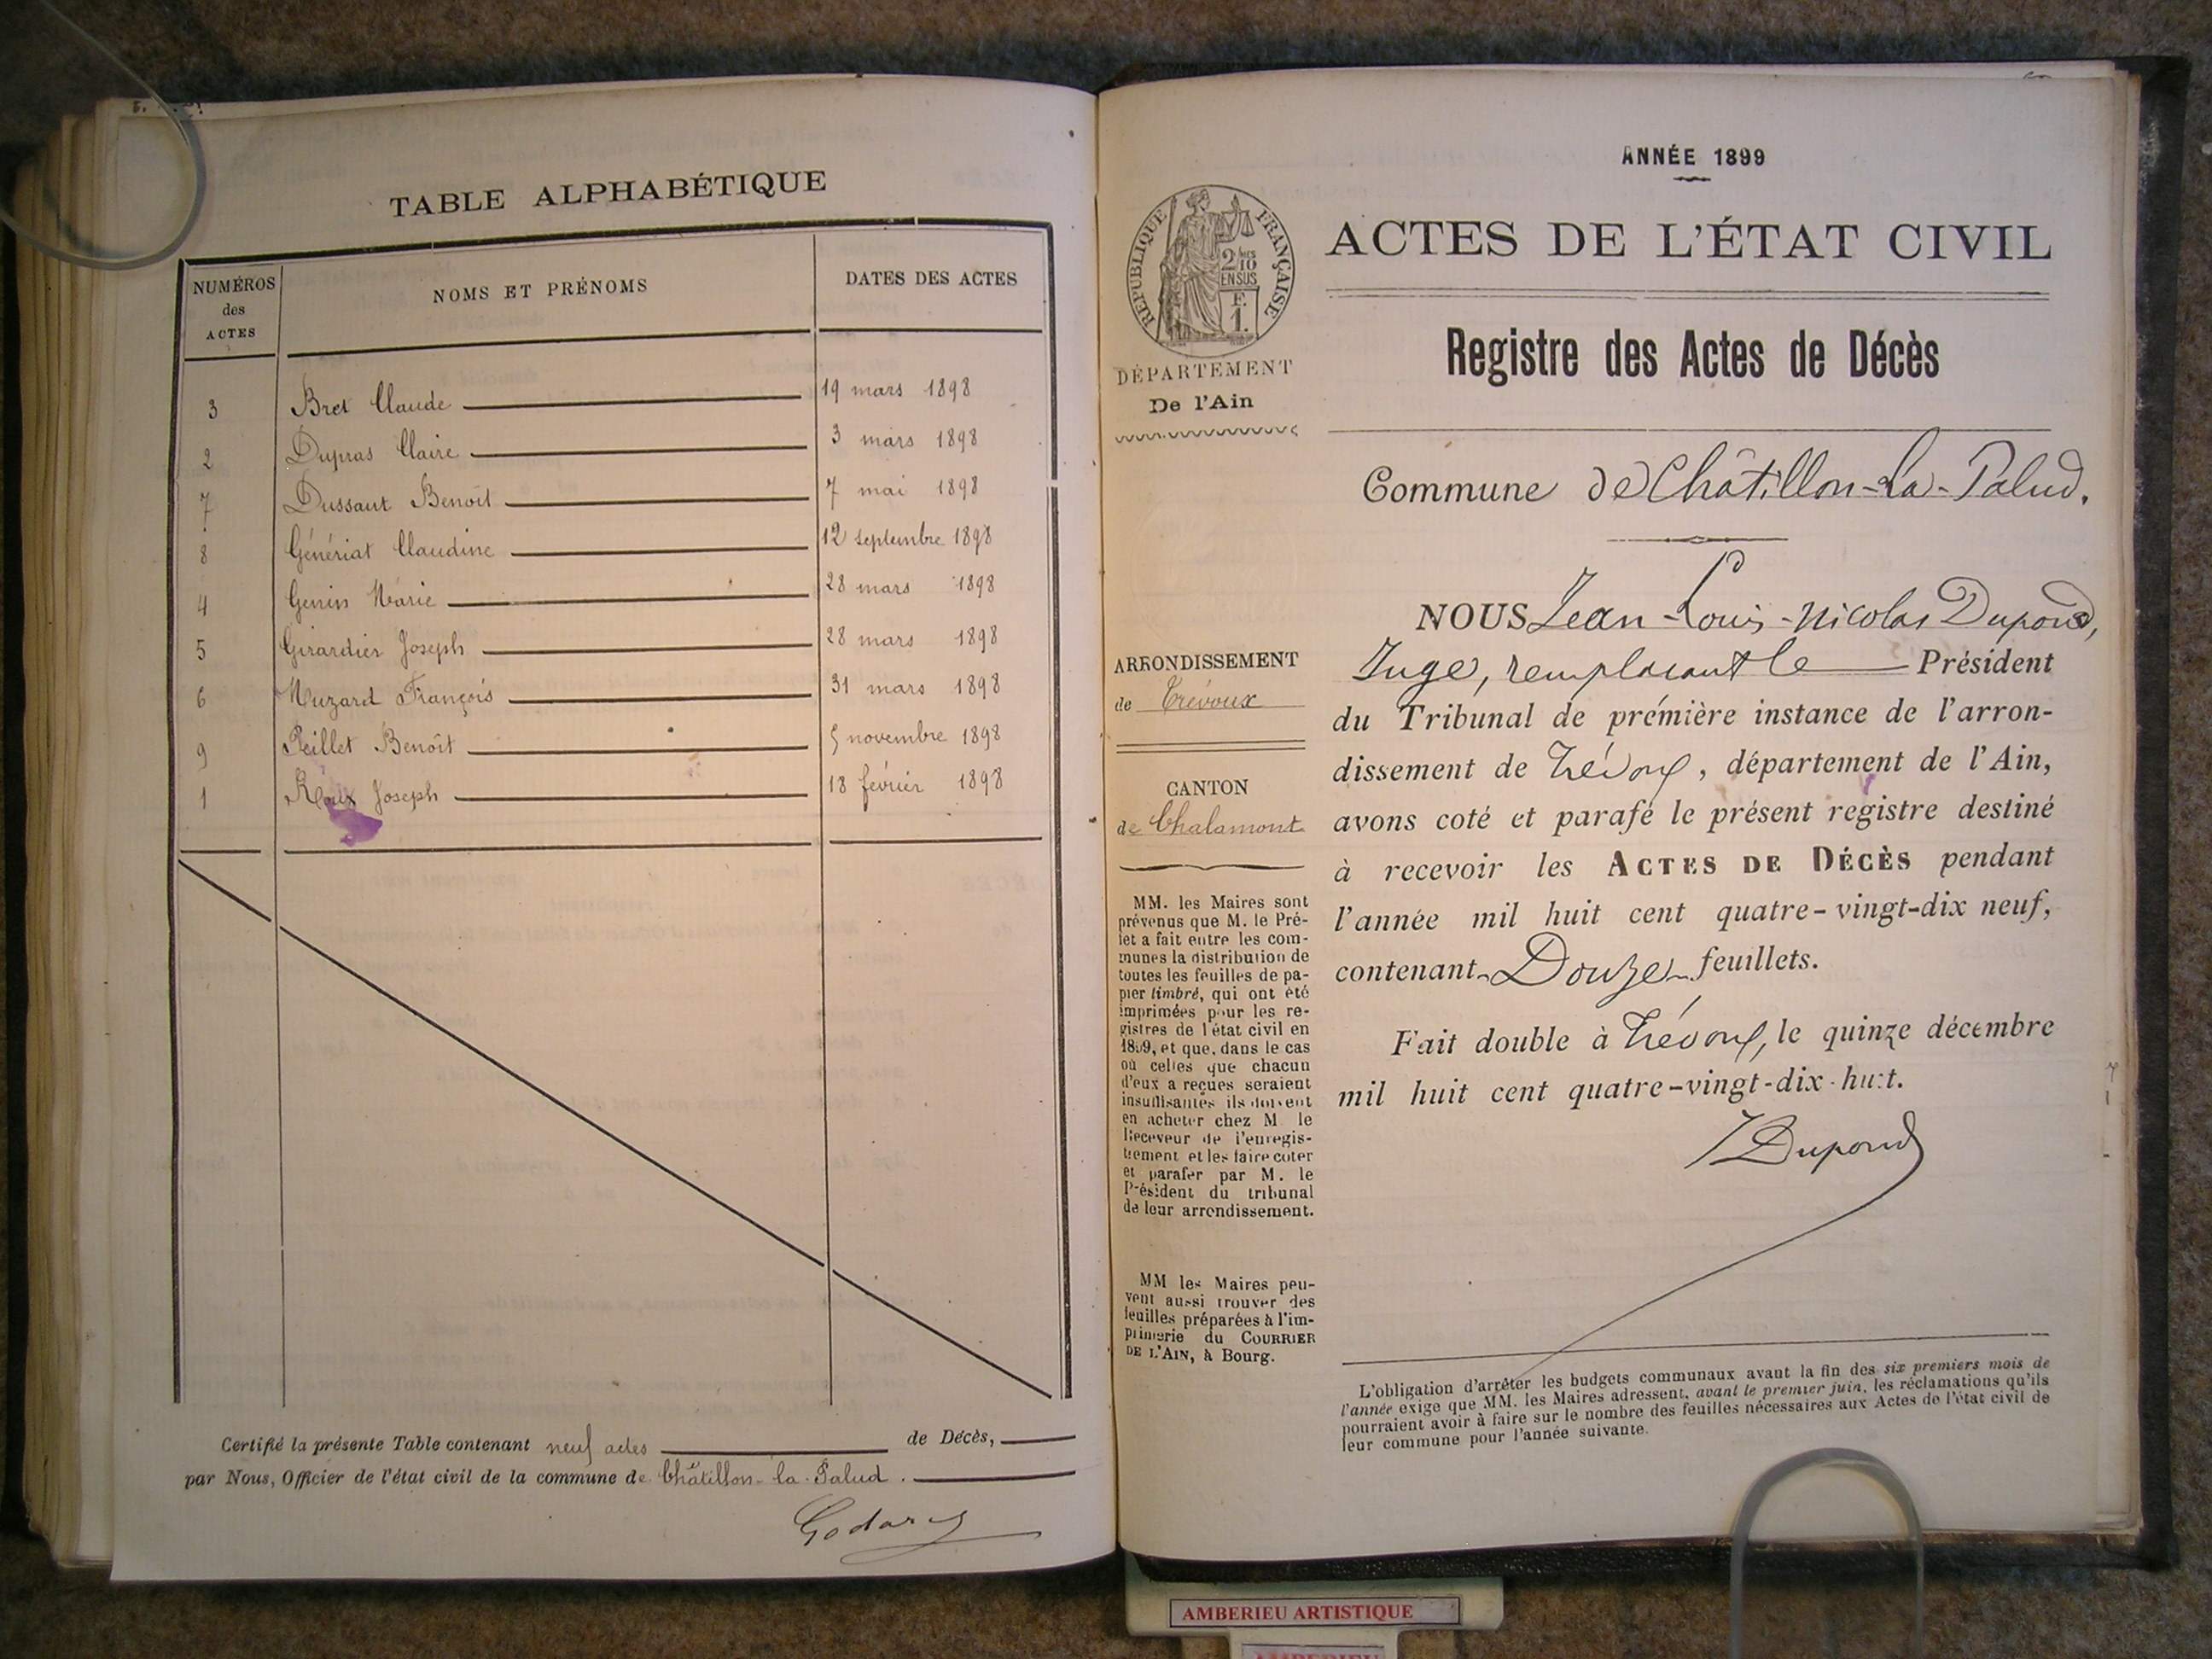 TABLE ALPHABÉTIQUE
NUMÉROS des ACTES NOMS ET PRÉNOMS DATES DES ACTES
3 Bret Claude 19 mars 1898
2 Dupras Claire 3 mars 1898
7 Dussaut Benoît 7 mai 1898
8 Génériat Claudine 12 septembre 1898
4 Genin Marie 28 mars 1898
5 Girardier Joseph 28 mars 1898
6 Muzard François 31 mars 1898
9 Peillet Benoît 5 novembre 1898
1 Roux Joseph 18 février 1898
Certifié la présente Table contenant neuf actes de Décès,
par Nous, Officier de l'état civil de la commune de Châtillon-la-Palud.
Godard
ANNÉE 1899
RÉPUBLIQUE FRANÇAISE
2/10 EN SUS
F. 1.
DÉPARTEMENT
De l'Ain
ARRONDISSEMENT
de Trévoux
CANTON
de Chalamont
MM. les Maires sont
prévenus que M. le Pré-
fet a fait entre les com-
munes la distribution de
toutes les feuilles de pa-
pier timbré, qui ont été
imprimées pour les re-
gistres de l'état civil en
1899, et que, dans le cas
où celles que chacun
d'eux a reçues seraient
insuffisantes ils doivent
en acheter chez M le
Receveur de l'enregis-
trement et les faire coter
et parafer par M. le
Président du tribunal
de leur arrondissement.
MM les Maires peu-
vent aussi trouver des
feuilles préparées à l'im-
primerie du COURRIER
DE L'AIN, à Bourg.
ACTES DE L'ÉTAT CIVIL
Registre des Actes de Décès
Commune de Châtillon-La-Palud.
NOUS Jean-Louis-Nicolas Dupond,
Juge, remplaçant le Président
du Tribunal de première instance de l'arron-
dissement de Trévoux, département de l'Ain,
avons coté et parafé le présent registre destiné
à recevoir les ACTES DE DÉCÈS pendant
l'année mil huit cent quatre-vingt-dix neuf,
contenant Douze feuillets.
Fait double à Trévoux, le quinze décembre
mil huit cent quatre-vingt-dix-huit.
JDupond
L'obligation d'arrêter les budgets communaux avant la fin des six premiers mois de
l'année exige que MM. les Maires adressent, avant le premier juin, les réclamations qu'ils
pourraient avoir à faire sur le nombre des feuilles nécessaires aux Actes de l'état civil de
leur commune pour l'année suivante.
AMBERIEU ARTISTIQUE
AMBERIEU